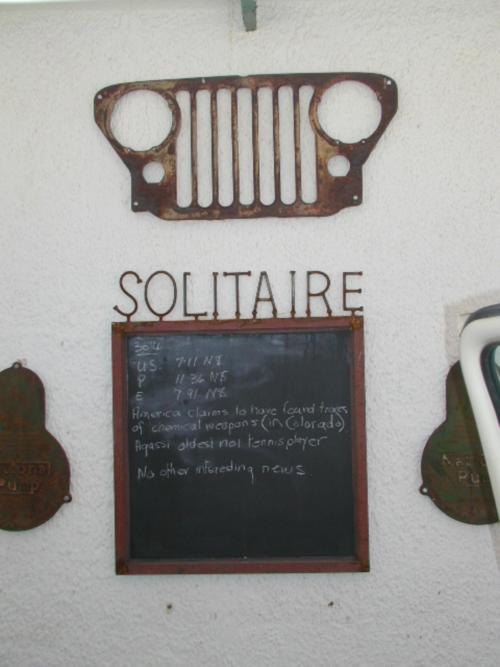 SOLITAIRE
30/4
US. 7.11 N$
P 11.36 N$
E 7.91 N$
America claims to have found traces
of chemical weapons (in Colorado)
Agassi oldest no1 tennisplayer
No other interesting news.
National
Pump